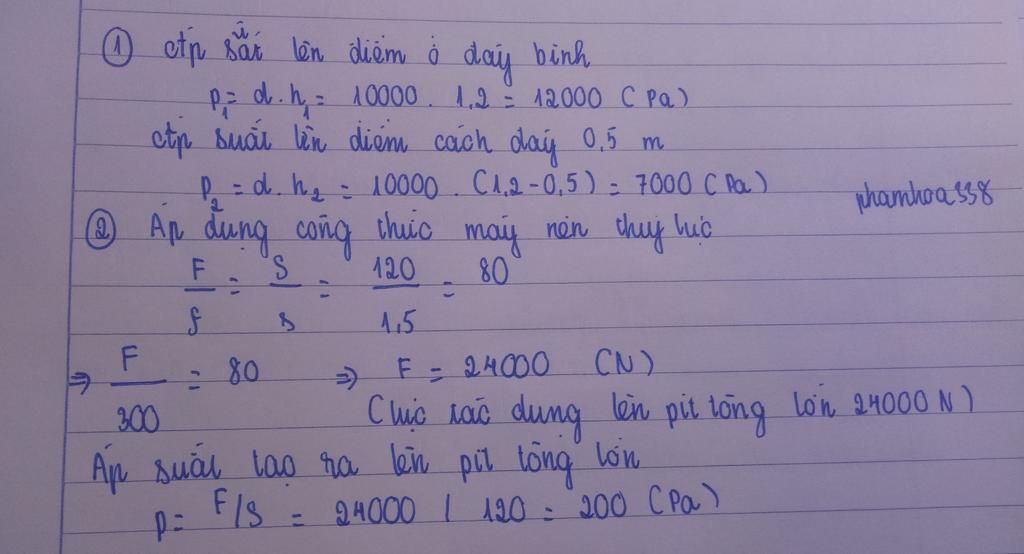 ① Áp suất lên điểm ở đáy bình
p₁ = d.h₁ = 10000 . 1,2 = 12000 (Pa)
Áp suất lên điểm cách đáy 0,5 m
p₂ = d.h₂ = 10000 . (1,2-0,5) = 7000 (Pa)
phamhoa338
② Áp dụng công thức máy nén thuỷ lực
F/f = S/s = 120/1,5 = 80
⇒ F/300 = 80 ⇒ F = 24000 (N)
(lực tác dụng lên pít tông lớn 24000 N)
Áp suất tạo ra lên pít tông lớn
p = F/S = 24000 / 120 = 200 (Pa)